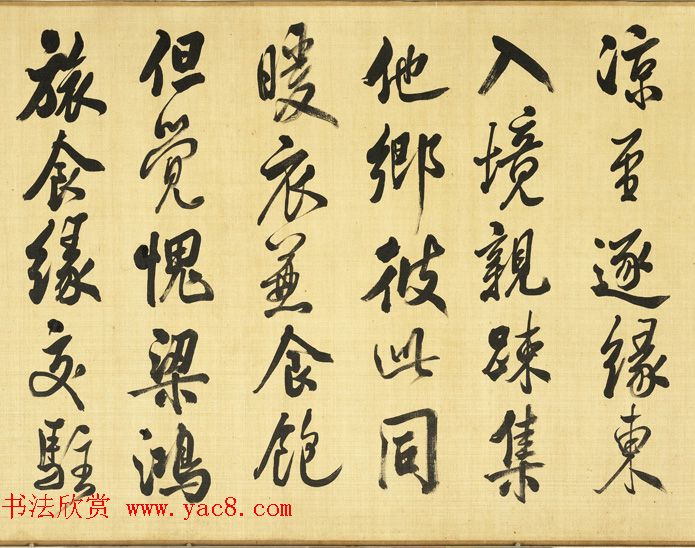 涼至逐緣東
入境親踈集
他鄉彼此同
暖衣兼食飽
但覺愧梁鴻
旅食緣交駐
书法欣赏 www.yac8.com